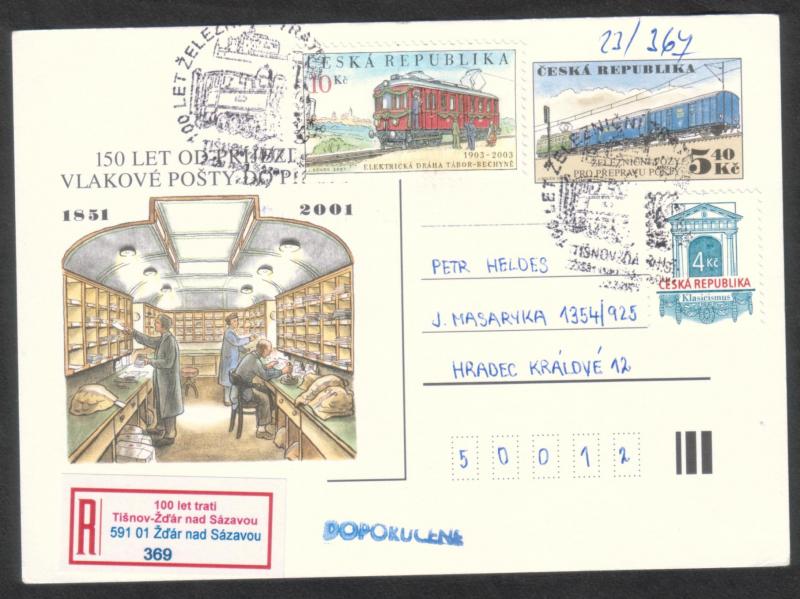 23/367
100 LET ŽELEZNIČNÍ TRATI
TIŠNOV
ČESKÁ REPUBLIKA
10 Kč
1903-2003
ELEKTRICKÁ DRÁHA TÁBOR-BECHYNĚ
ČESKÁ REPUBLIKA
ŽELEZNIČNÍ VOZY
PRO PŘEPRAVU POŠTY
5 40 Kč
150 LET OD
VLAKOVÉ POŠTY DO
1851 2001
100 LET ŽELEZNIČNÍ
TIŠNOV
4 Kč
ČESKÁ REPUBLIKA
Klasicismus
PETR HELDES
J. MASARYKA 1354/925
HRADEC KRÁLOVÉ 12
5 0 0 1 2
R
100 let trati
Tišnov-Žďár nad Sázavou
591 01 Žďár nad Sázavou
369
DOPORUČENĚ